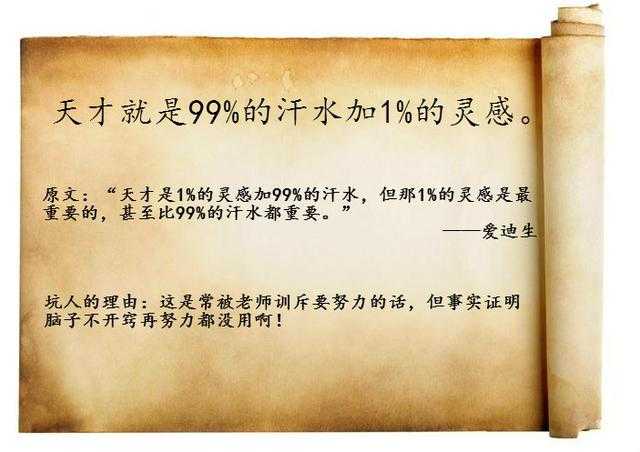 天才就是99%的汗水加1%的灵感。
原文：“天才是1%的灵感加99%的汗水，但那1%的灵感是最
重要的，甚至比99%的汗水都重要。”
——爱迪生
坑人的理由：这是常被老师训斥要努力的话，但事实证明
脑子不开窍再努力都没用啊！